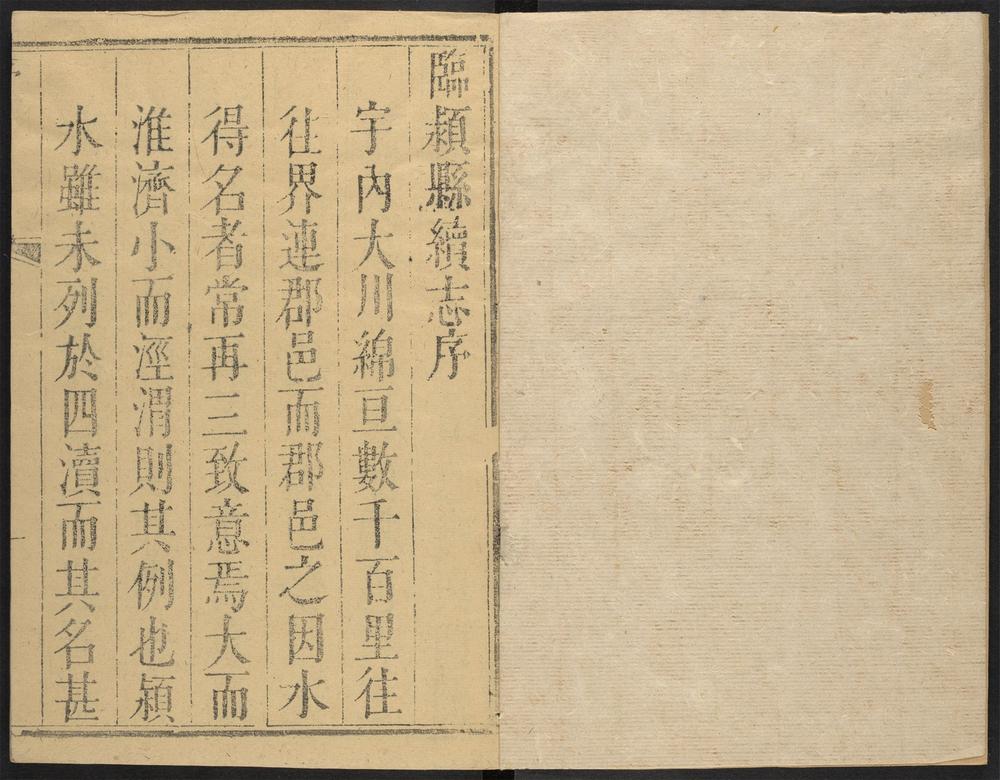 臨潁縣續志序
宇內大川綿亘數千百里往
往界連郡邑而郡邑之因水
得名者常再三致意焉大而
淮濟小而涇渭則其例也潁
水雖未列於四瀆而其名甚